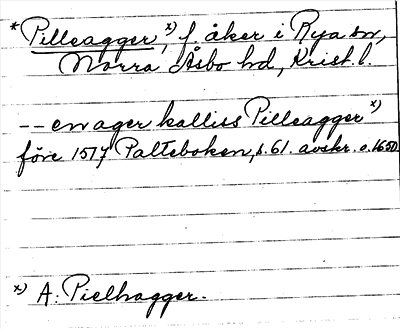 * Pilleagger, x) f. åker i Rya sn,
Norra Åsbo hd, Krist. l.
-- en ager kallis Pilleagger x)
före 1517 Palteboken, s. 61. avskr. o. 1650
x) A: Pielhagger.